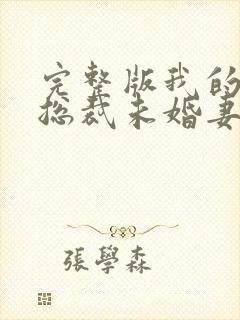 完整版我的
总裁未婚妻
張學森